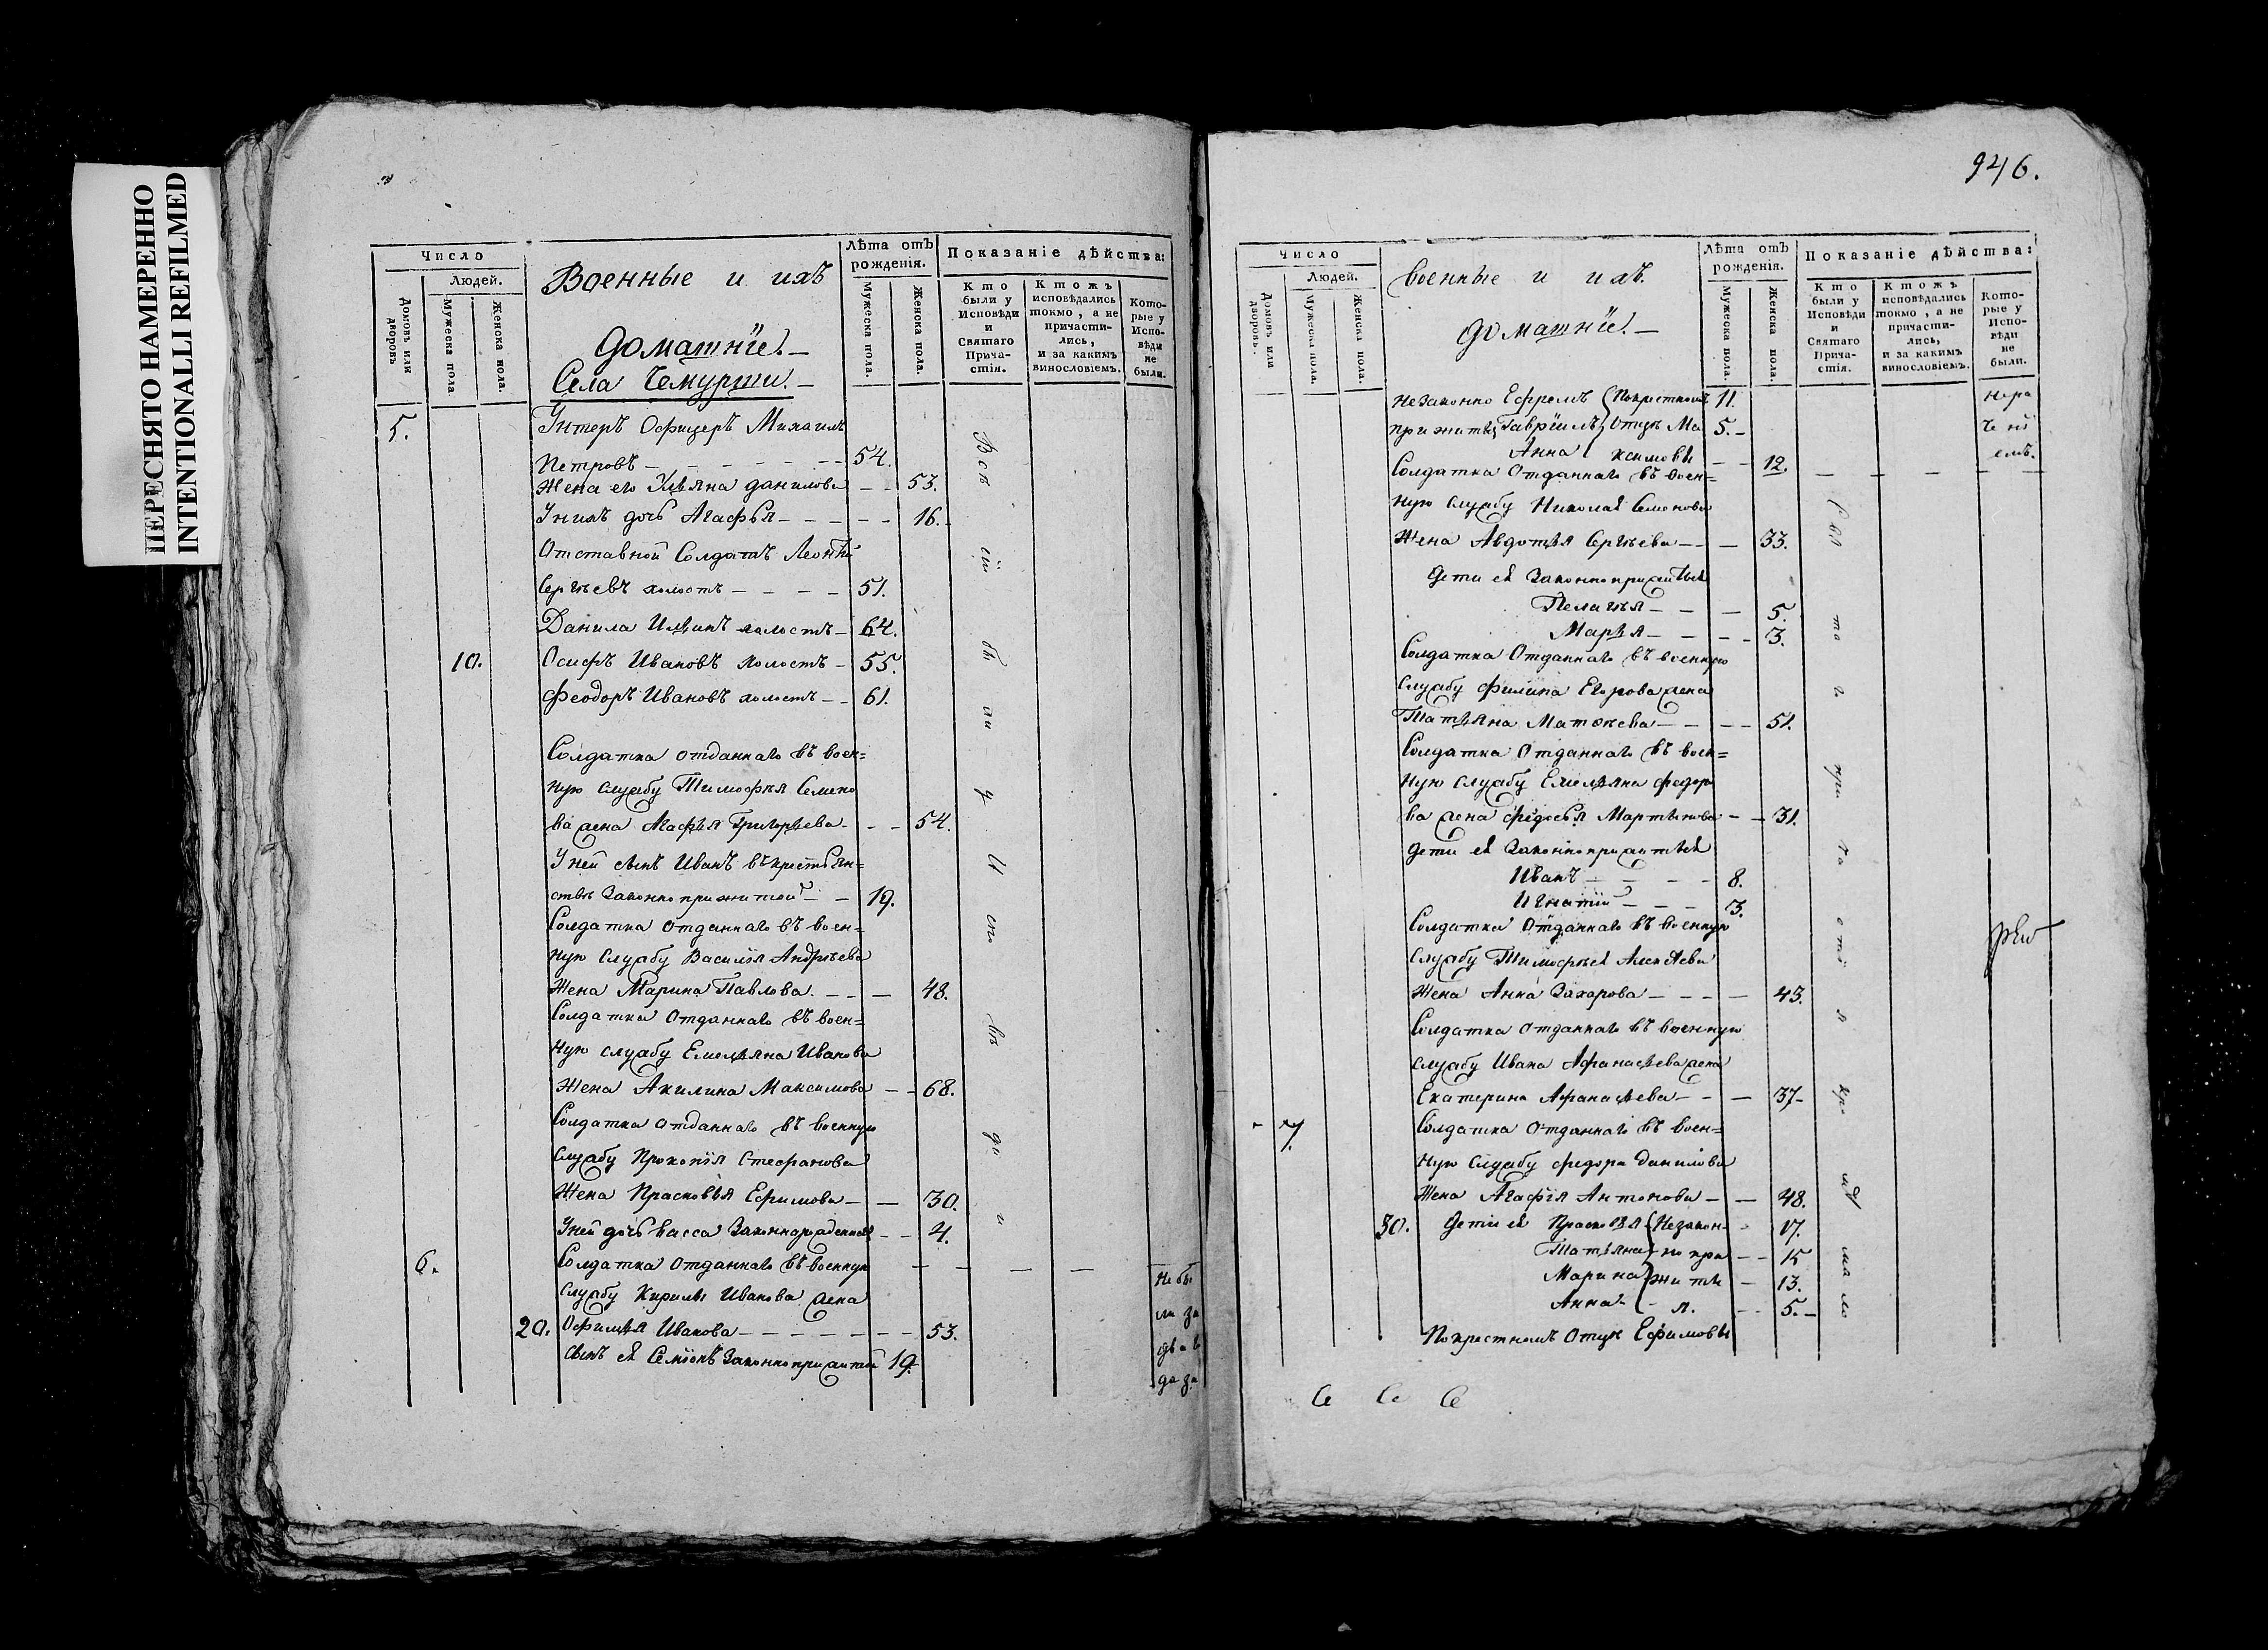 ПЕРЕСНЯТО НАМЕРЕННО
INTENTIONALLI REFILMED
Число
Людей.
Домовъ или дворовъ
Мужеска пола.
Женска пола.
Военные и ихъ
домашнїе. —
Села Чемурши. —
Лѣта отъ рожденія.
Мужеска пола.
Женска пола.
Показаніе дѣйства:
Кто были у Исповѣди и Святаго Причастія.
Ктожъ исповѣдались токмо, а не причастились, и за какимъ винословіемъ.
Которые у Исповѣди не были.
5. Унтеръ Офицеръ Михаилъ
Петровъ — 54.
Жена его Ульяна данилова — 53.
У нихъ дочь Агафья — 16.
Отставной Солдатъ Леонтїй
Сергѣевъ холостъ — 51.
Данила Ильинъ холостъ — 64.
10. Осифъ Ивановъ холостъ — 55.
Феодоръ Ивановъ холостъ — 61.
Солдатка отданнаго въ воен=
ную службу Тимофѣя Семено
ва жена Агафья Григорьева — 54.
У ней сынъ Иванъ въ крестьян=
ствѣ Законно прижитой — 19.
Солдатка отданнаго въ воен=
ную службу Василїя Андрѣева
Жена Марина Павлова — 48.
Солдатка Отданнаго въ воен=
ную службу Емельяна Иванова
Жена Акилина Максимова — 68.
Солдатка отданнаго въ военную
службу Прокопїя Стефанова
Жена Прасковья Ефимова — 30.
У ней дочь Васса Законнорожденная — 4.
6. Солдатка отданнаго въ военную
службу Кирилы Иванова жена
20. Офимья Иванова — 53.
сынъ ея Семїонъ Законно прижитой 19.
Не бы
ли за
946.
Число
Людей.
Домовъ или дворовъ.
Мужеска пола.
Женска пола.
военные и ихъ.
домашнїе. —
Лѣта отъ рожденія.
Мужеска пола.
Женска пола.
Показаніе дѣйства:
Кто были у Исповѣди и Святаго Причастія.
Ктожъ исповѣдались токмо, а не причастились, и за какимъ винословіемъ.
Которые у Исповѣди не были.
незаконно Ефремъ (покрестному 11. нера
прижиты Гаврїилъ отцѣ Ма 5. — чені
Анна ксимовы — 12. емъ.
Солдатка Отданнаго въ воен=
ную службу Николая Семенова
Жена Авдотья Сергѣева — 33.
Дети ея Законноприжитыя
Пелагѣя — 5.
Марья — 3.
Солдатка Отданнаго въ военную
службу филипа Егорова жена
Татьяна Матвѣева — 51.
Солдатка Отданнаго въ воен=
ную службу Емельяна федоро
ва жена федосья Мартынова — 31.
дети ея Законноприжитыя
Иванъ — 8.
Игнатїй — 3.
Солдатка Отданнаго въ военную
службу Тимофѣя Алексѣева
Жена Анна Захарова — 43.
Солдатка отданнаго въ военную
службу Ивана Афанасьева жена
Екатерина Афанасьева — 37 —
7. Солдатка Отданнаго въ воен=
ную службу федора данилова
Жена Агафїя Антонова — 48.
30. Дети ея Прасковья (Незакон- 17.
Татьяна но при — 15
Марина житы — 13.
Анна — я. — 5. —
Покрестномъ отцѣ Ефимовы